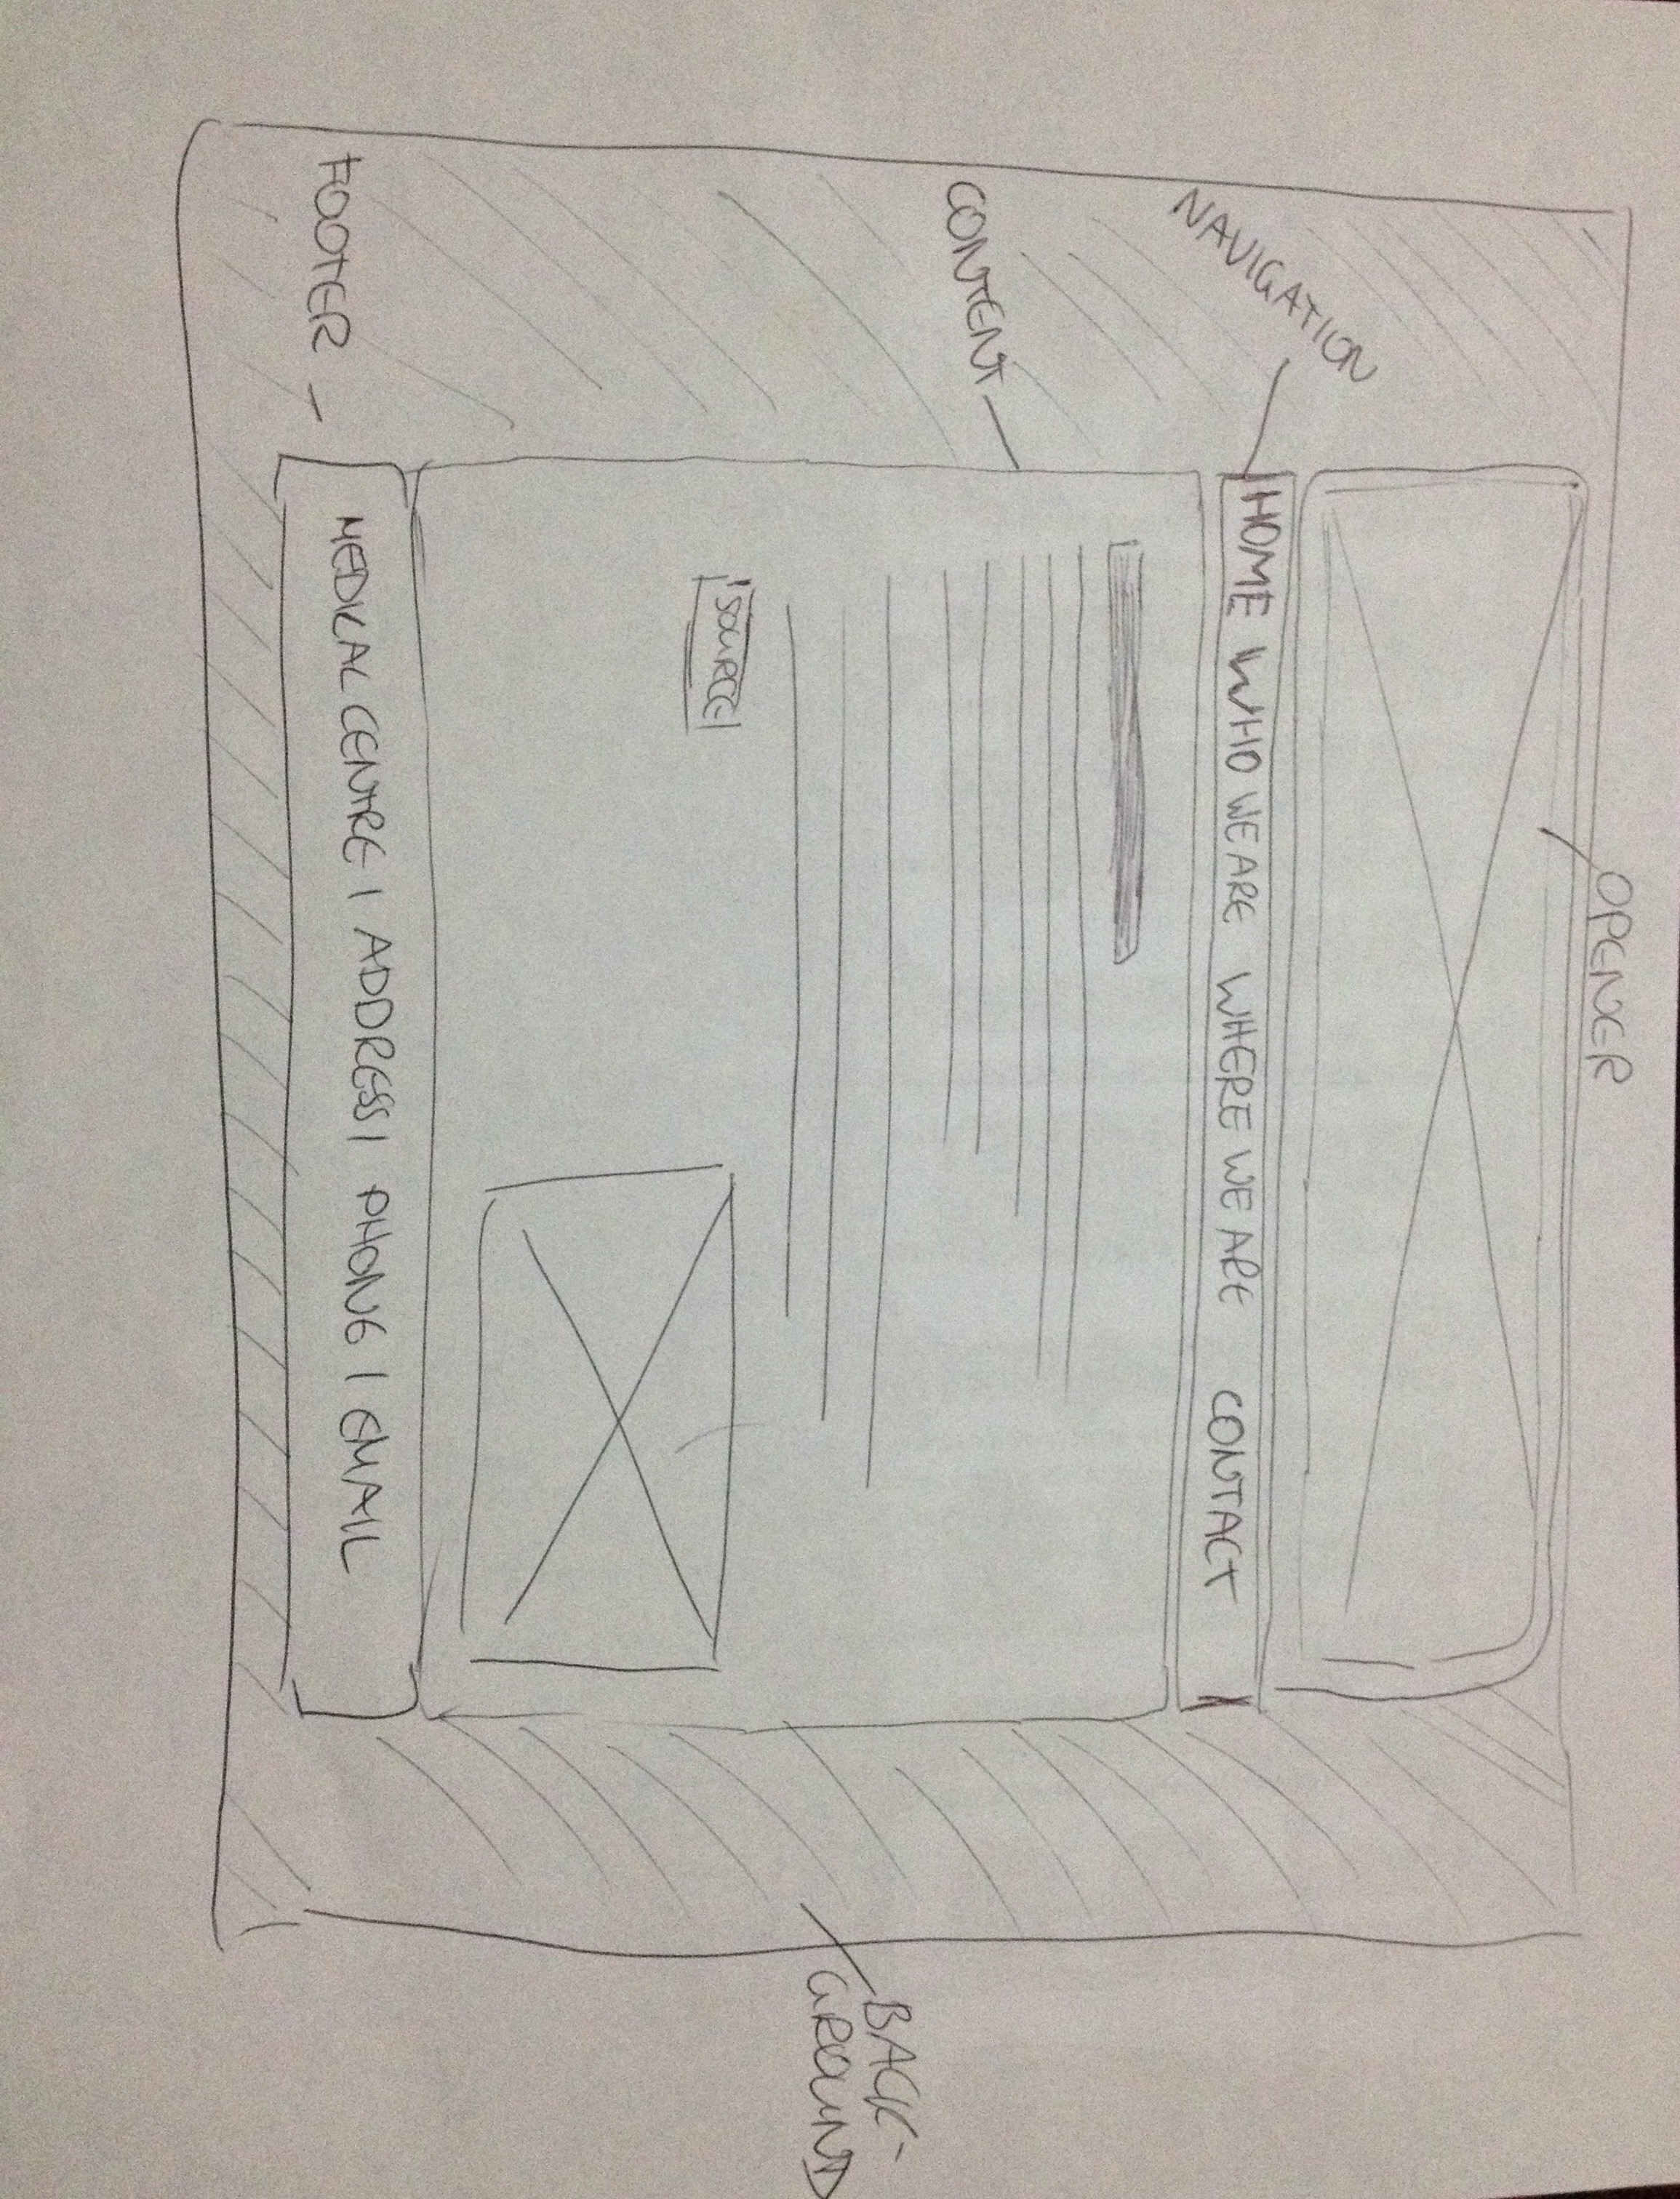 OPENER
NAVIGATION
HOME WHO WE ARE WHERE WE ARE CONTACT
CONTENT
SOURCE
BACK-
GROUND
FOOTER
MEDICAL CENTRE | ADDRESS | PHONE | EMAIL